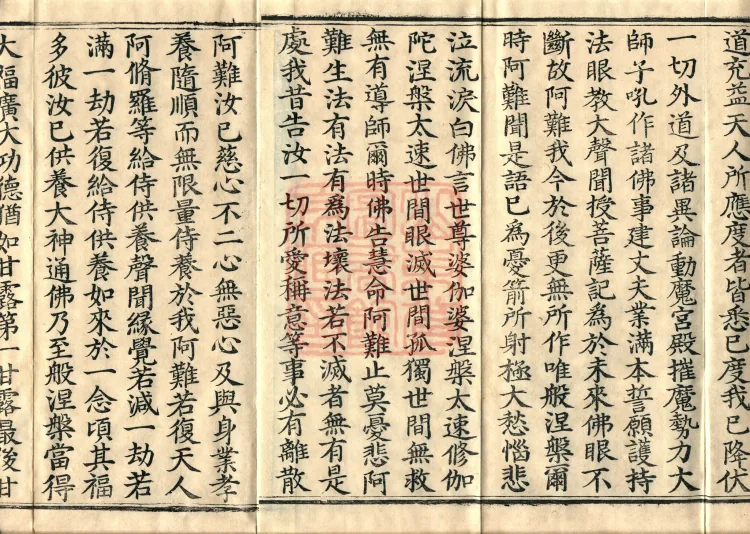 道充益天人所應度者皆悉已度我已降伏
一切外道及諸異論動魔宮殿摧魔勢力大
師子吼作諸佛事建丈夫業滿本誓願護持
法眼教大聲聞授菩薩記為於未來佛眼不
斷故阿難我今於後更無所作唯般涅槃爾
時阿難聞是語已為憂箭所射極大愁惱悲
泣流淚白佛言世尊婆伽婆涅槃太速修伽
陀涅槃太速世間眼滅世間孤獨世間無救
無有導師爾時佛告慧命阿難止莫憂悲阿
難生法有法有為法壞法若不滅者無有是
處我昔告汝一切所愛稱意等事必有離散
阿難汝已慈心不二心無惡心及與身業孝
養隨順而無限量侍養於我阿難若復天人
阿脩羅等給侍供養聲聞緣覺若減一劫若
滿一劫若復給侍供養如來於一念頃其福
多彼汝已供養大神通佛乃至般涅槃當得
大福廣大功德猶如甘露第一甘露最後甘